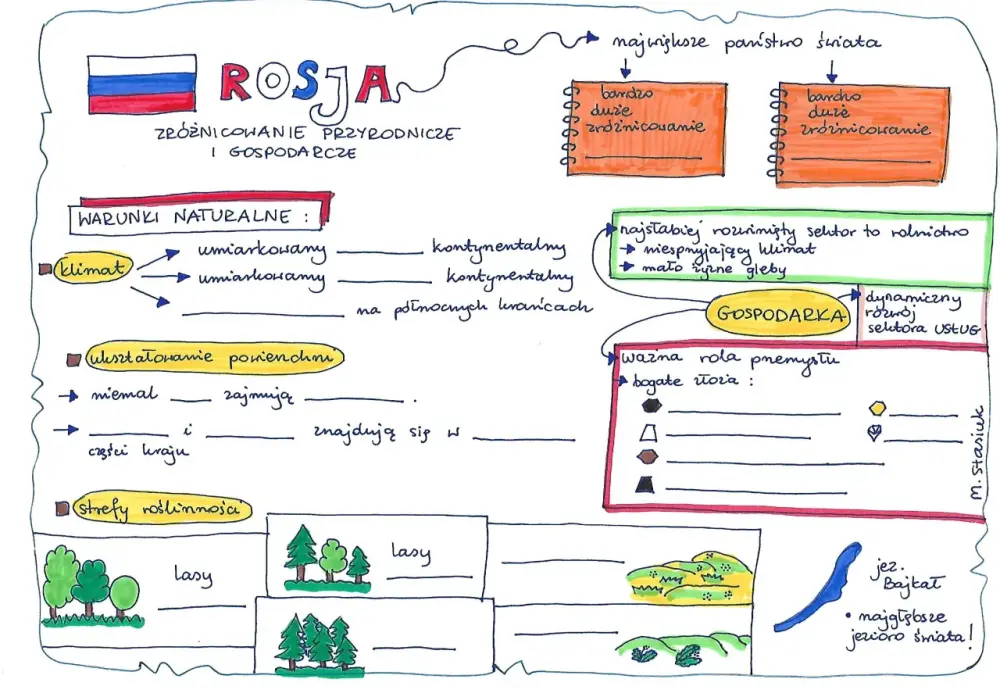 ROSJA
ZRÓŻNICOWANIE PRZYRODNICZE
I GOSPODARCZE
największe państwo świata
bardzo
duże
zróżnicowanie
bardzo
duże
zróżnicowanie
WARUNKI NATURALNE :
klimat
umiarkowany ______ kontynentalny
umiarkowany ______ kontynentalny
______ na północnych krańcach
ukształtowanie powierzchni
niemal ____ zajmują ______ .
______ i ______ znajdują się w ______
części kraju
strefy roślinności
lasy ______
lasy ______
lasy ______
najsłabiej rozwinięty sektor to rolnictwo
niesprzyjający klimat
mało żyzne gleby
GOSPODARKA
dynamiczny
rozwój
sektora USŁUG
ważna rola przemysłu
bogate złoża :
M. Stasiuk
jez.
Bajkał
• najgłębsze
jezioro świata!